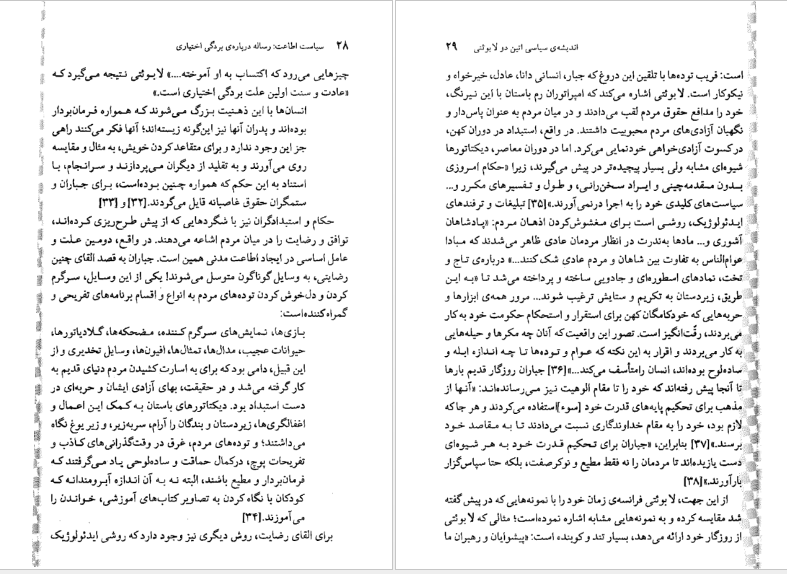 ۲۸ سیاست اطاعت: رساله درباره‌ی بردگی اختیاری
چیزهایی می‌رود که اکتساب به او آموخته....» لا بوئتی نتیجه می‌گیرد که
«عادت و سنت اولین علت بردگی اختیاری است.»
انسان‌ها با این ذهنیت بزرگ می‌شوند که همواره فرمان‌بردار
بوده‌اند و پدران آنها نیز این‌گونه زیسته‌اند؛ آنها فکر می‌کنند راهی
جز این وجود ندارد و برای متقاعد کردن خویش، به مثال و مقایسه
روی می‌آورند و به تقلید از دیگران می‌پردازند و سرانجام، با
استناد به این حکم که همواره چنین بوده‌است، برای جباران و
ستمگران حقوق غاصبانه قایل می‌گردند.[۳۲] و [۳۳]
حکام و استبدادگران نیز با شگردهایی که از پیش طرح‌ریزی کرده‌اند،
توافق و رضایت را در میان مردم اشاعه می‌دهند. در واقع، دومین علت و
عامل اساسی در ایجاد اطاعت مدنی همین است. جباران به قصد القای چنین
رضایتی، به وسایل گوناگون متوسل می‌شوند؛ یکی از این وسایل، سرگرم
کردن و دل‌خوش کردن توده‌های مردم به انواع و اقسام برنامه‌های تفریحی و
گمراه‌کننده‌است:
بازی‌ها، نمایش‌های سرگرم کننده، مضحکه‌ها، گلادیاتورها،
حیوانات عجیب، مدال‌ها، تمثال‌ها، افیون‌ها، وسایل تخدیری و از
این قبیل، دامی بود که برای به اسارت کشیدن مردم دنیای قدیم به
کار گرفته می‌شد و در حقیقت، بهای آزادی ایشان و حربه‌ای در
دست استبداد بود. دیکتاتورهای باستان به کمک این اعمال و
اغفالگری‌ها، زیردستان و بندگان را آرام، سربه‌زیر، و زیر یوغ نگاه
می‌داشتند؛ و توده‌های مردم، غرق در وقت‌گذرانی‌های کاذب و
تفریحات پوچ، درکمال حماقت و ساده‌لوحی یاد می‌گرفتند که
فرمان‌بردار و مطیع باشند، البته نه به آن اندازه آبرومندانه که
کودکان با نگاه کردن به تصاویر کتاب‌های آموزشی، خواندن را
می‌آموزند.[۳۴]
برای القای رضایت، روش دیگری نیز وجود دارد که روشی ایدئولوژیک
اندیشه‌ی سیاسی اتین دو لا بوئتی ۲۹
است: فریب توده‌ها با تلقین این دروغ که جبار، انسانی دانا، عادل، خیرخواه و
نیکوکار است. لا بوئتی اشاره می‌کند که امپراتوران رم باستان با این نیرنگ،
خود را مدافع حقوق مردم لقب می‌دادند و در میان مردم به عنوان پاس‌دار و
نگهبان آزادی‌های مردم محبوبیت داشتند. در واقع، استبداد در دوران کهن،
در کسوت آزادی‌خواهی خودنمایی می‌کرد. اما در دوران معاصر، دیکتاتورها
شیوه‌ای مشابه ولی بسیار پیچیده‌تر در پیش می‌گیرند، زیرا «حکام امروزی
بدون مقدمه‌چینی و ایراد سخن‌رانی، و طول و تفسیرهای مکرر و...
سیاست‌های کلیدی خود را به اجرا درنمی‌آورند.»[۳۵] تبلیغات و ترفندهای
ایدئولوژیک، روشی است برای مغشوش‌کردن اذهان مردم: «پادشاهان
آشوری و... مادها به‌ندرت در انظار مردمان عادی ظاهر می‌شدند که مبادا
عوام‌الناس به تفاوت بین شاهان و مردم عادی شک کنند...» درباره‌ی تاج و
تخت، نمادهای اسطوره‌ای و جادویی ساخته و پرداخته می‌شد تا «به این
طریق، زیردستان به تکریم و ستایش ترغیب شوند... مرور همه‌ی ابزارها و
حربه‌هایی که خودکامگان کهن برای استقرار و استحکام حکومت خود به کار
می‌بردند، رقّت‌انگیز است. تصور این واقعیت که آنان چه مکرها و حیله‌هایی
به کار می‌بردند و اقرار به این نکته که عوام و توده‌ها تا چه اندازه ابله و
ساده‌لوح بوده‌اند، انسان را متأسف می‌کند...»[۳۶] جباران روزگار قدیم بارها
تا آنجا پیش رفته‌اند که خود را تا مقام الوهیت نیز می‌رسانده‌اند: «آنها از
مذهب برای تحکیم پایه‌های قدرت خود [سوء] استفاده می‌کردند و هر جا که
لازم بود، خود را به مقام خداوندگاری نسبت می‌دادند تا به مقاصد خود
برسند.»[۳۷] بنابراین، «جباران برای تحکیم قدرت خود به هر شیوه‌ای
دست یازیده‌اند تا مردمان را نه فقط مطیع و نوکرصفت، بلکه حتا سپاس‌گزار
بارآورند.»[۳۸]
از این جهت، لا بوئتی فرانسه‌ی زمان خود را با نمونه‌هایی که در پیش گفته
شد مقایسه کرده و به نمونه‌هایی مشابه اشاره نموده‌است؛ مثالی که لا بوئتی
از روزگار خود ارائه می‌دهد، بسیار تند و کوبنده است: «پیشوایان و رهبران ما